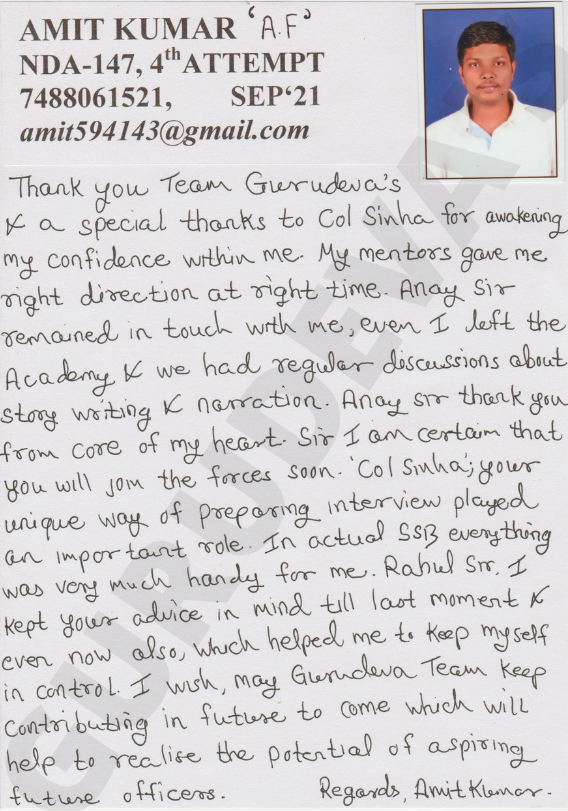 AMIT KUMAR 'A.F'
NDA-147, 4th ATTEMPT
7488061521, SEP'21
amit594143@gmail.com
Thank you Team Gurudeva's
& a special thanks to Col Sinha for awakening
my confidence within me. My mentors gave me
right direction at right time. Anay Sir
remained in touch with me, even I left the
Academy & we had regular discussions about
story writing & narration. Anay sir thank you
from core of my heart. Sir I am certain that
you will join the forces soon. 'Col Sinha', your
unique way of preparing interview played
an important role. In actual SSB everything
was very much handy for me. Rahul Sir. I
kept your advice in mind till last moment &
even now also, which helped me to keep myself
in control. I wish, may Gurudeva Team keep
contributing in future to come which will
help to realise the potential of aspiring
future officers. Regards, Amit Kumar.
GURUDEVAS